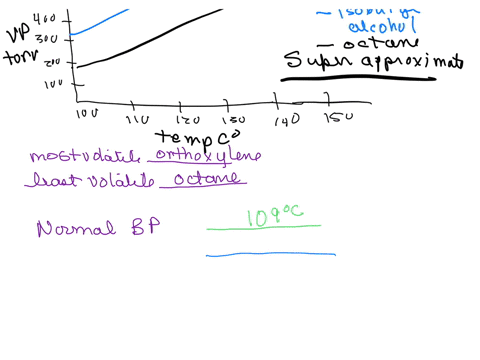 400
— isobutyl
alcohol
VP
300
— octane
torr
200
Super approximate
100
100 110 120 130 140 150
temp C°
most volatile orthoxylene
least volatile octane
109°C
Normal BP